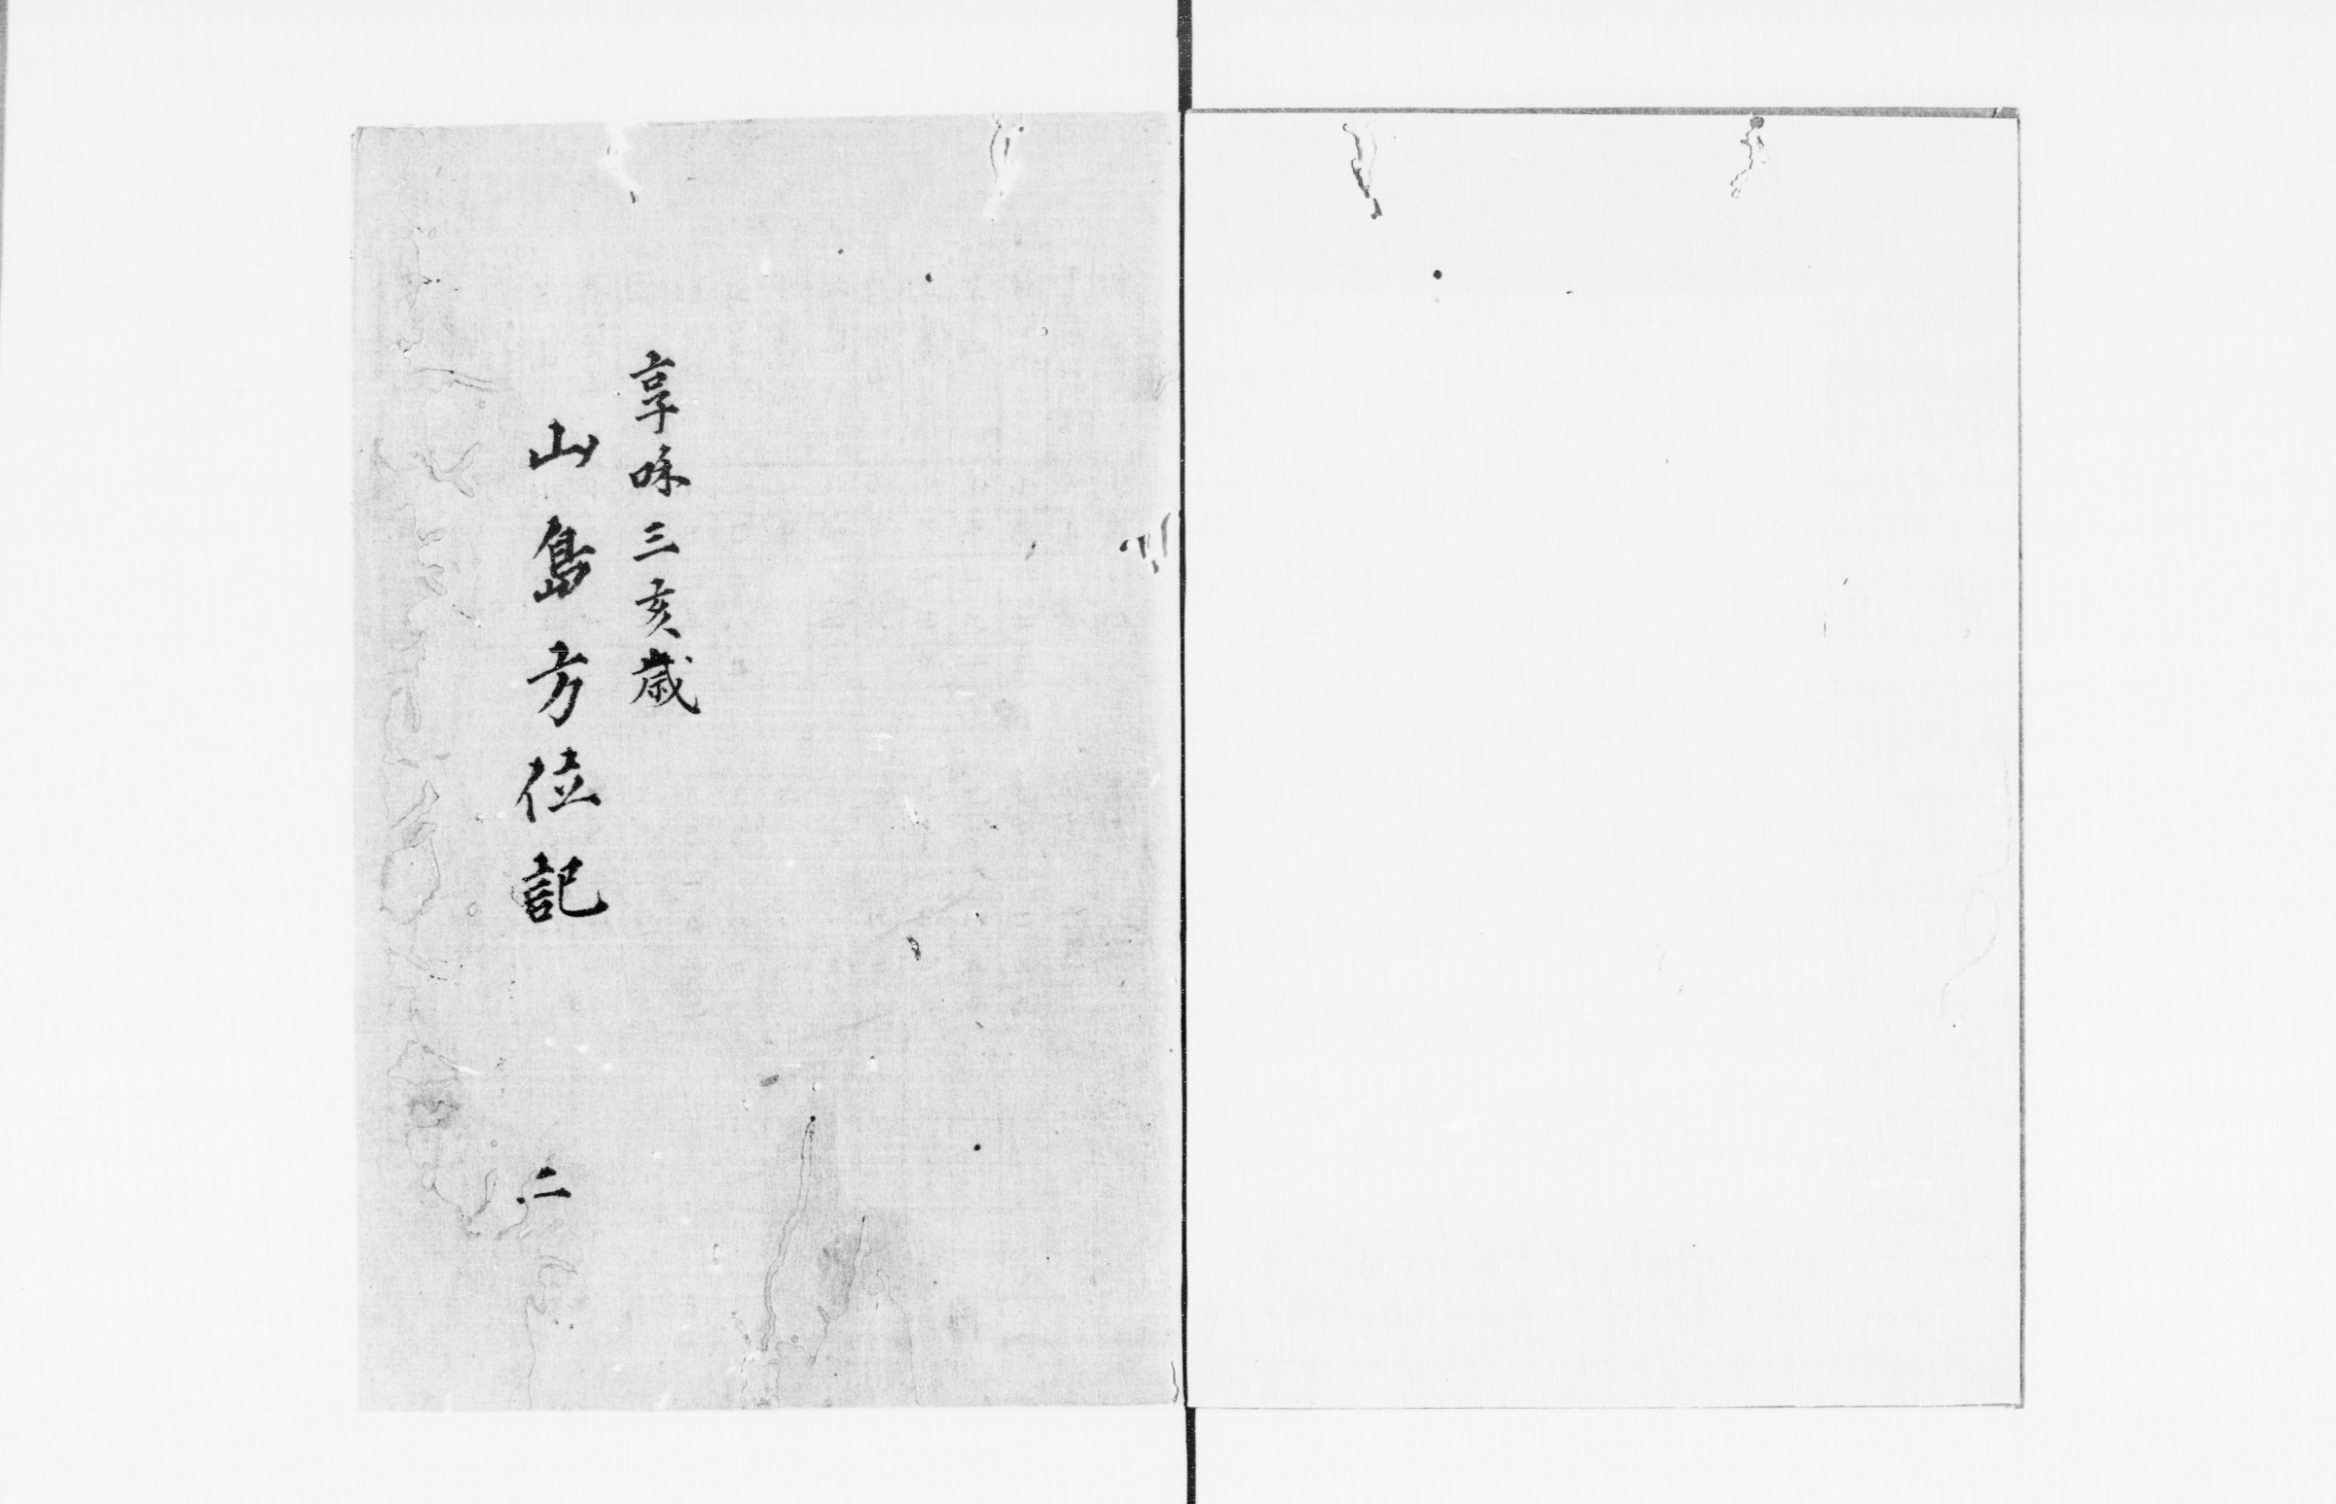 享咊三亥歳
山島方位記
二